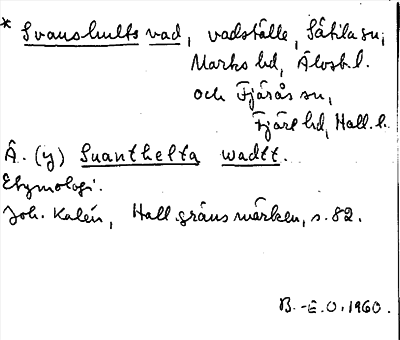 * Svanshults vad, vadställe, Sätila sn,
Marks hd, Älvsb. l.
och Fjärås sn,
Fjäre hd, Hall. l.
Å. (y) Suanthelta wadtt.
Etymologi.
Joh. Kalén, Hall. gränsmärken, s. 82.
B.-E.O. 1960.